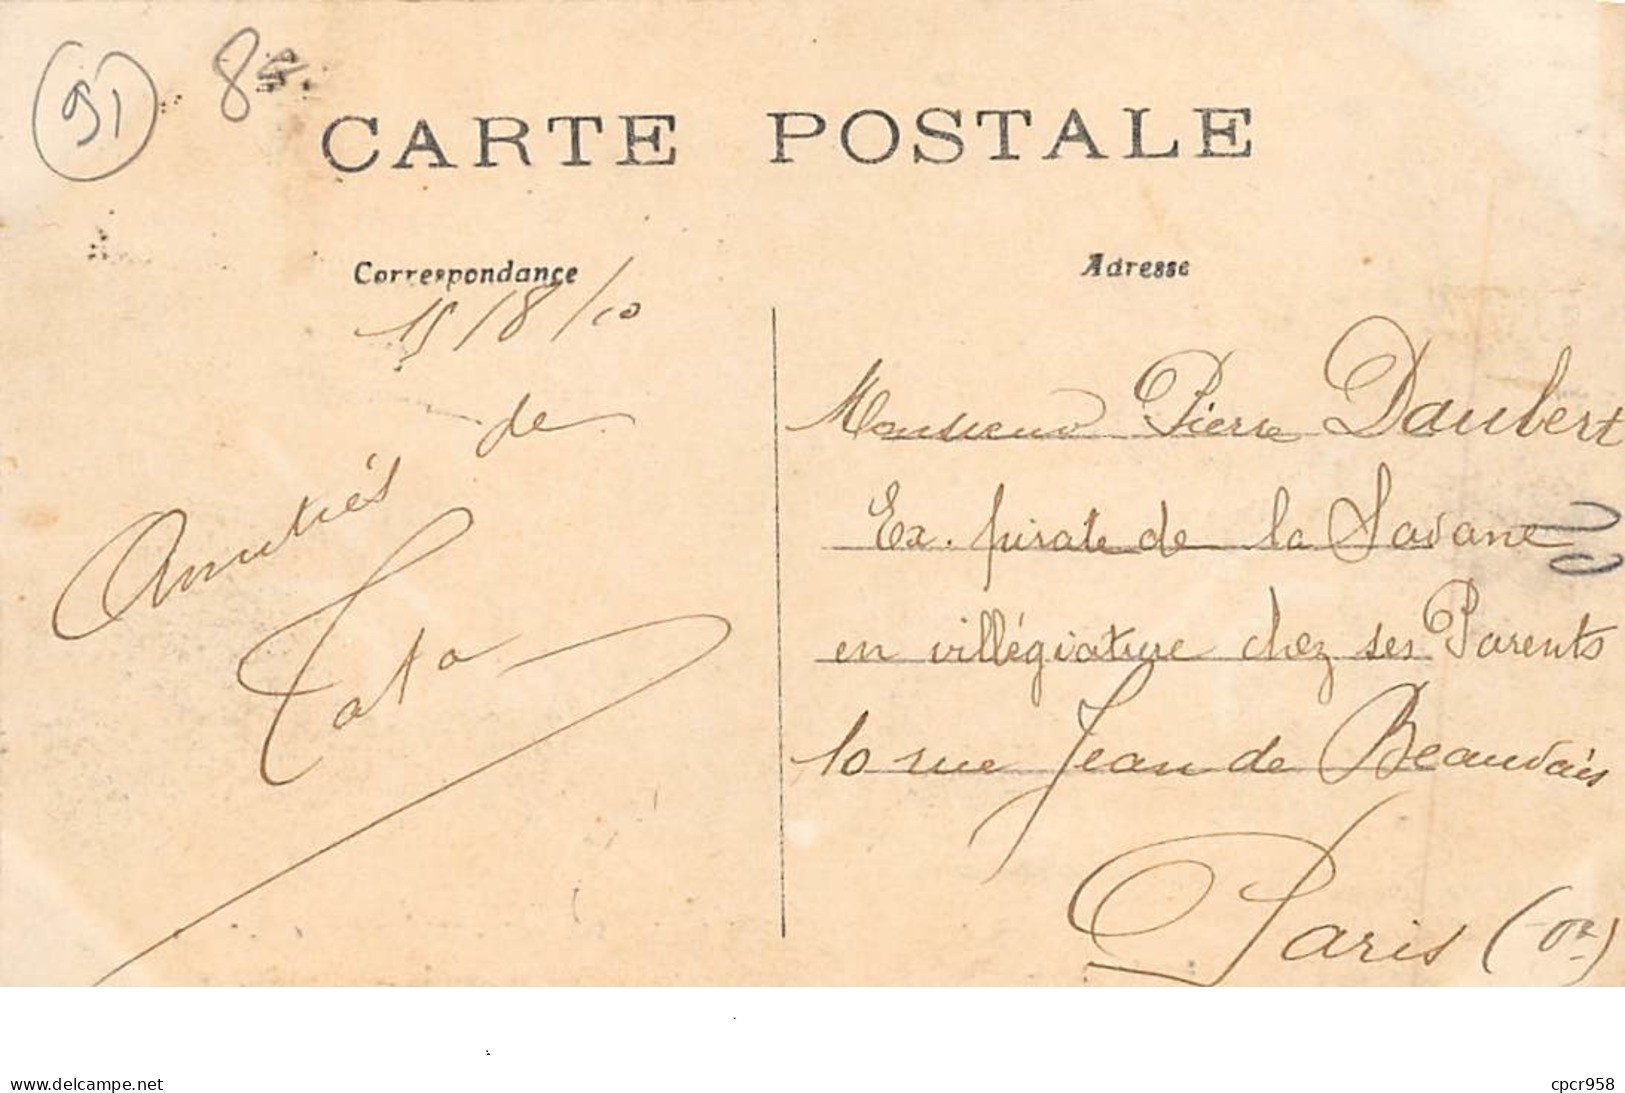 91
CARTE POSTALE
Correspondance
15/8/10
de
Amitiés
Tata
Adresse
Monsieur Pierre Daubert
Ex. pirate de la Savane
en villégiature chez ses Parents
10 rue Jean de Beauvais
Paris
www.delcampe.net
cpcr958